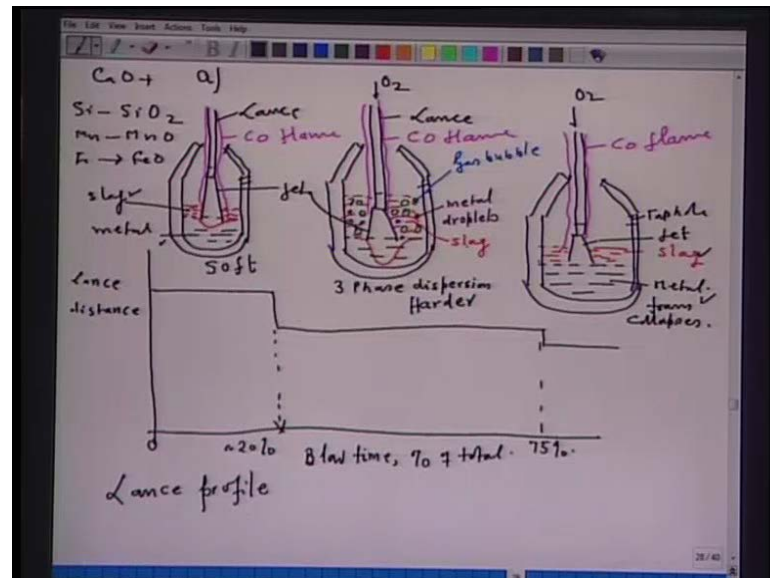 File Edit View Insert Actions Tools Help
B I
CaO+ a)
Si - SiO2
Mn - MnO
Fe → FeO
Lance
CO flame
slag
metal
Jet
Soft
O2
Lance
CO flame
Gas bubble
metal droplets
slag
3 Phase dispersion
Harder
O2
CO flame
Taphole
Jet
slag
Metal.
Collapses.
Lance
distance
0
~20%
Blow time, % of total.
75%.
Lance profile
28/40